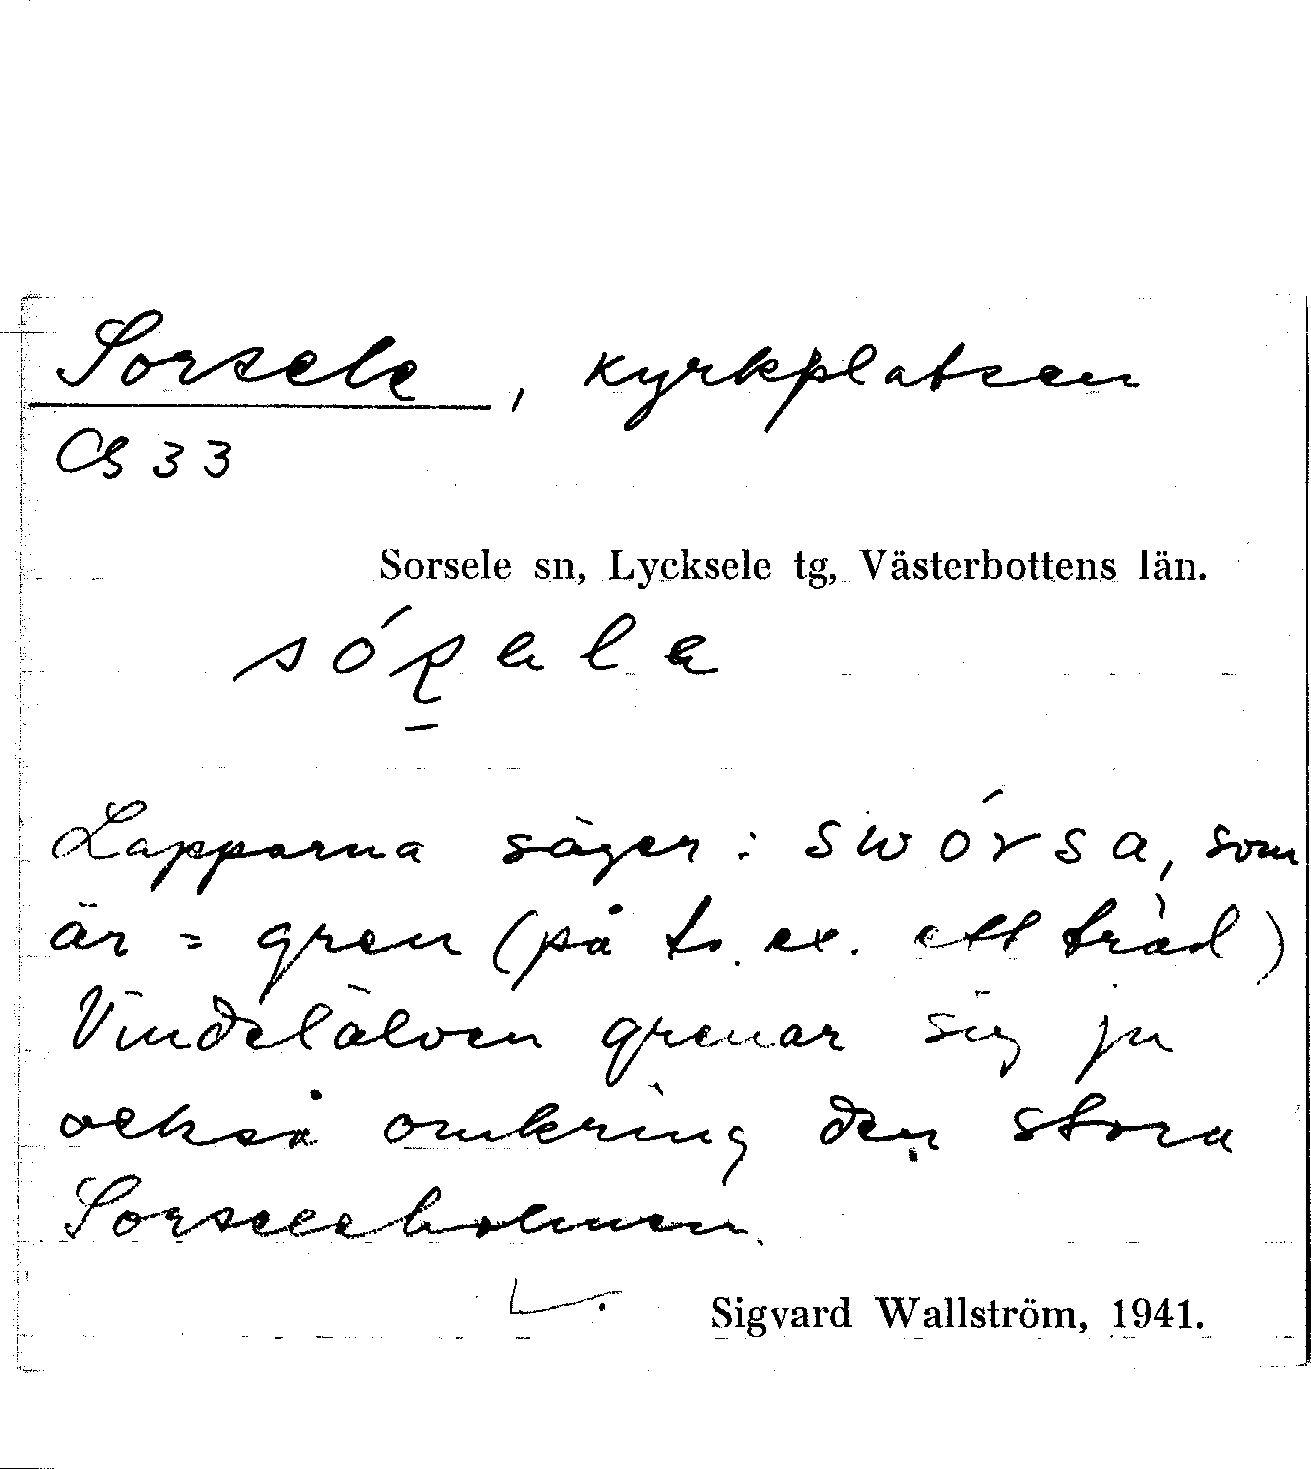 Sorsele, kyrkplatsen
CB 33
Sorsele sn, Lycksele tg, Västerbottens län.
Lapparna säger: swórsa, som
är = gren (på t. ex. ett träd)
Vindelälven grenar sig ju
också omkring den stora
Sorseleholmen.
Sigvard Wallström, 1941.